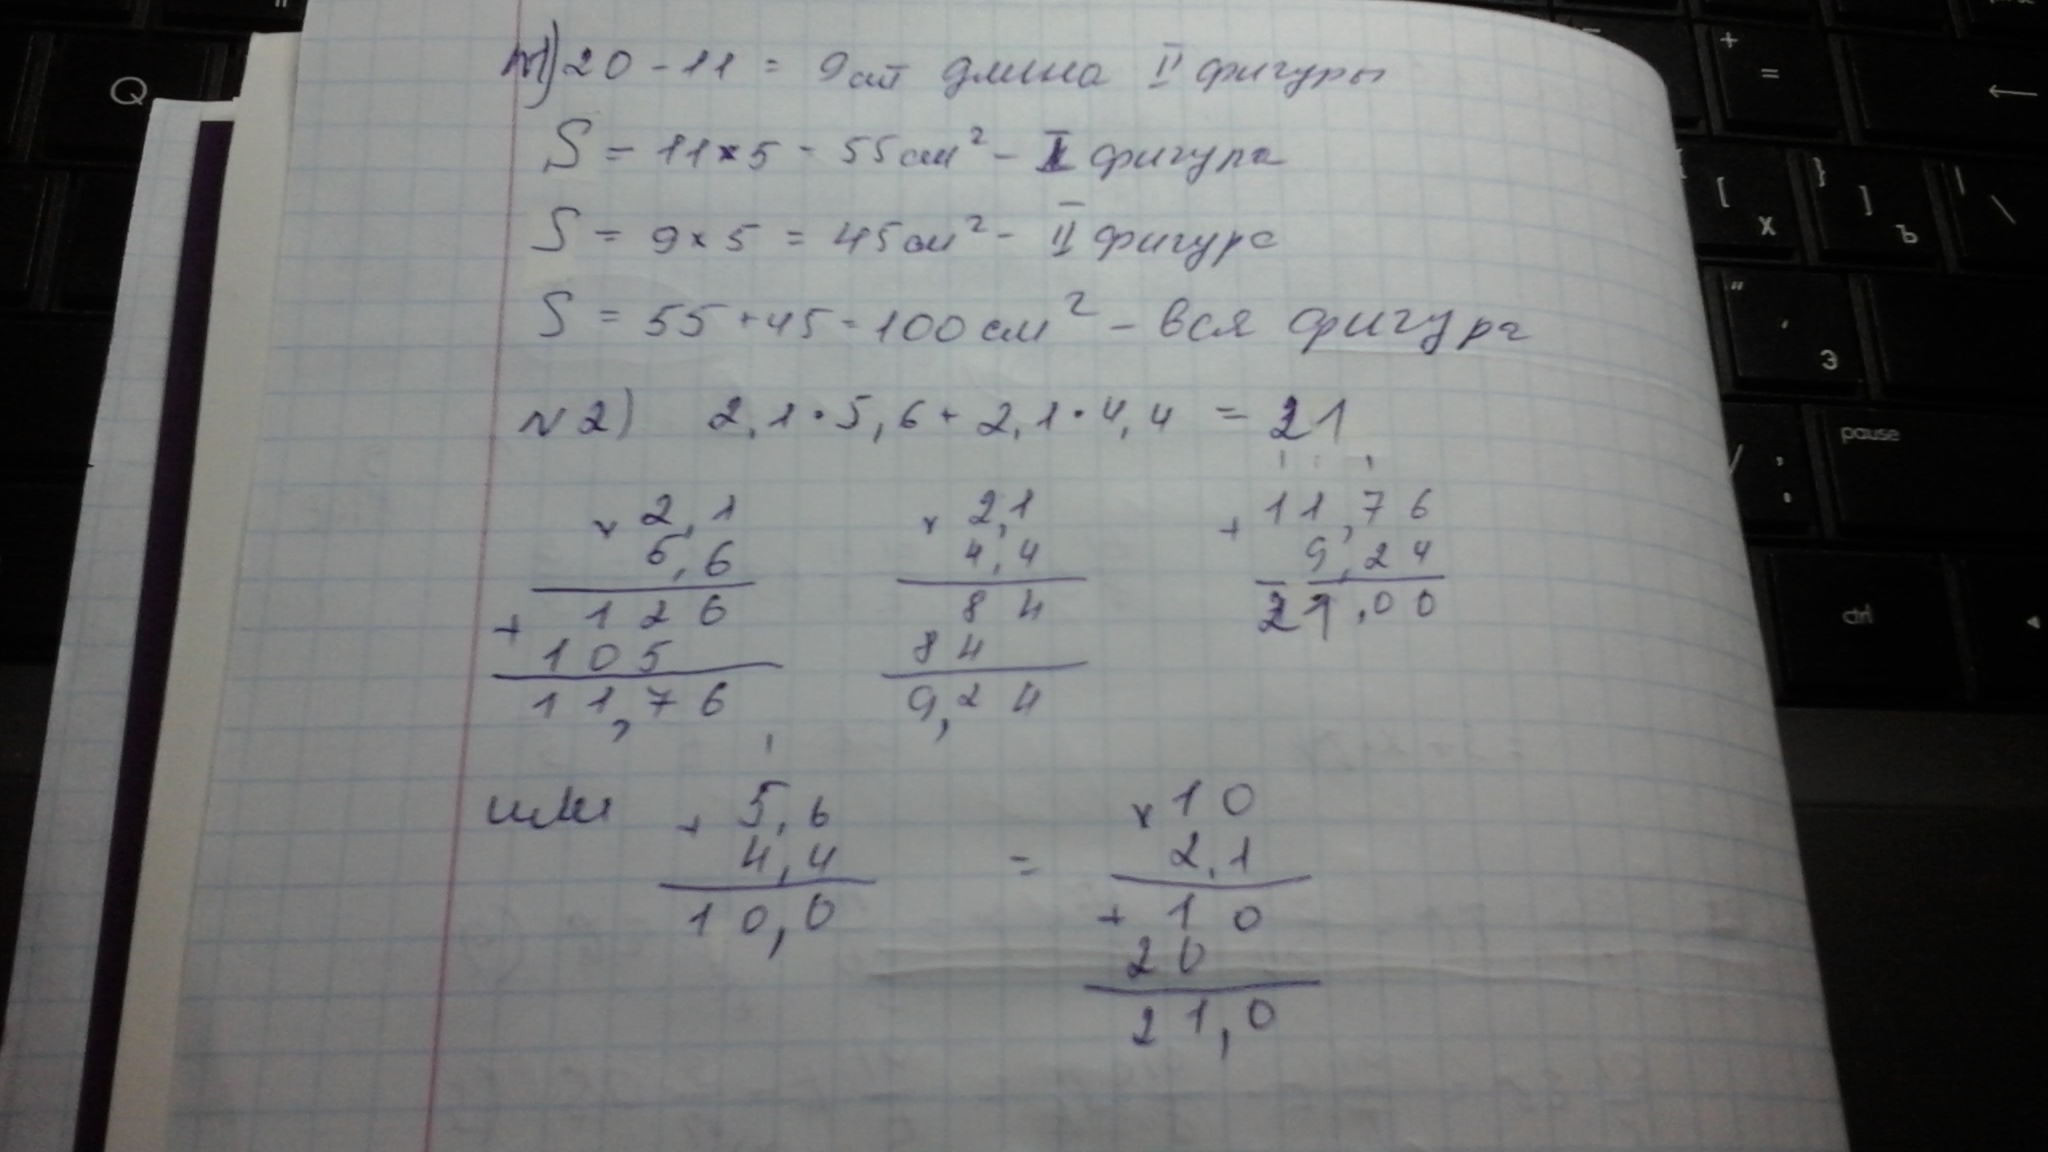 №1) 20 - 11 = 9см длина II фигуры
S = 11 × 5 = 55 см² - I фигура
S = 9 × 5 = 45 см² - II фигура
S = 55 + 45 = 100 см² - вся фигура
№2) 2,1 · 5,6 + 2,1 · 4,4 = 21
× 2,1
5,6
+ 126
105
11,76
× 2,1
4,4
84
84
9,24
+ 11,76
9,24
21,00
или
+ 5,6
4,4
10,0
=
× 10
2,1
+ 10
20
21,0
Q
+
=
←
{
[
х
}
]
ъ
|
\
"
'
э
pause
ctrl